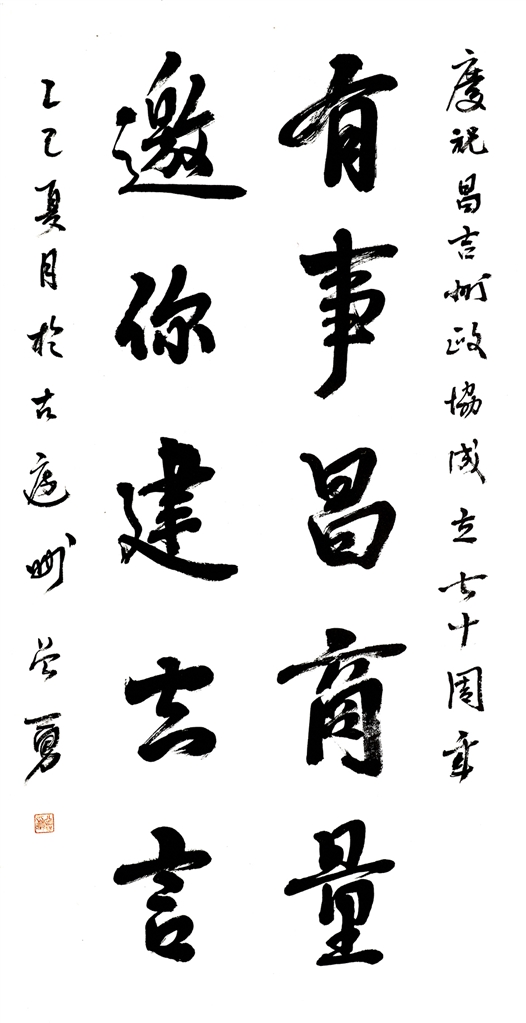 慶祝昌吉州政協成立七十周年
有事昌商量
邀你建直言
乙巳夏月於古庭州 勇